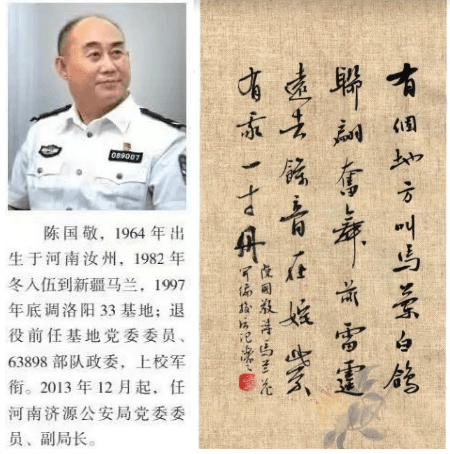 089007
陈国敬，1964 年出
生于河南汝州，1982 年
冬入伍到新疆马兰，1997
年底调洛阳 33 基地；退
役前任基地党委委员、
63898 部队政委，上校军
衔。2013 年 12 月起，任
河南济源公安局党委委
员、副局长。
有個地方叫馬蘭白鴿
聯翩奮舞前雷霆
遠去餘音在
有我一寸丹
陳國敬